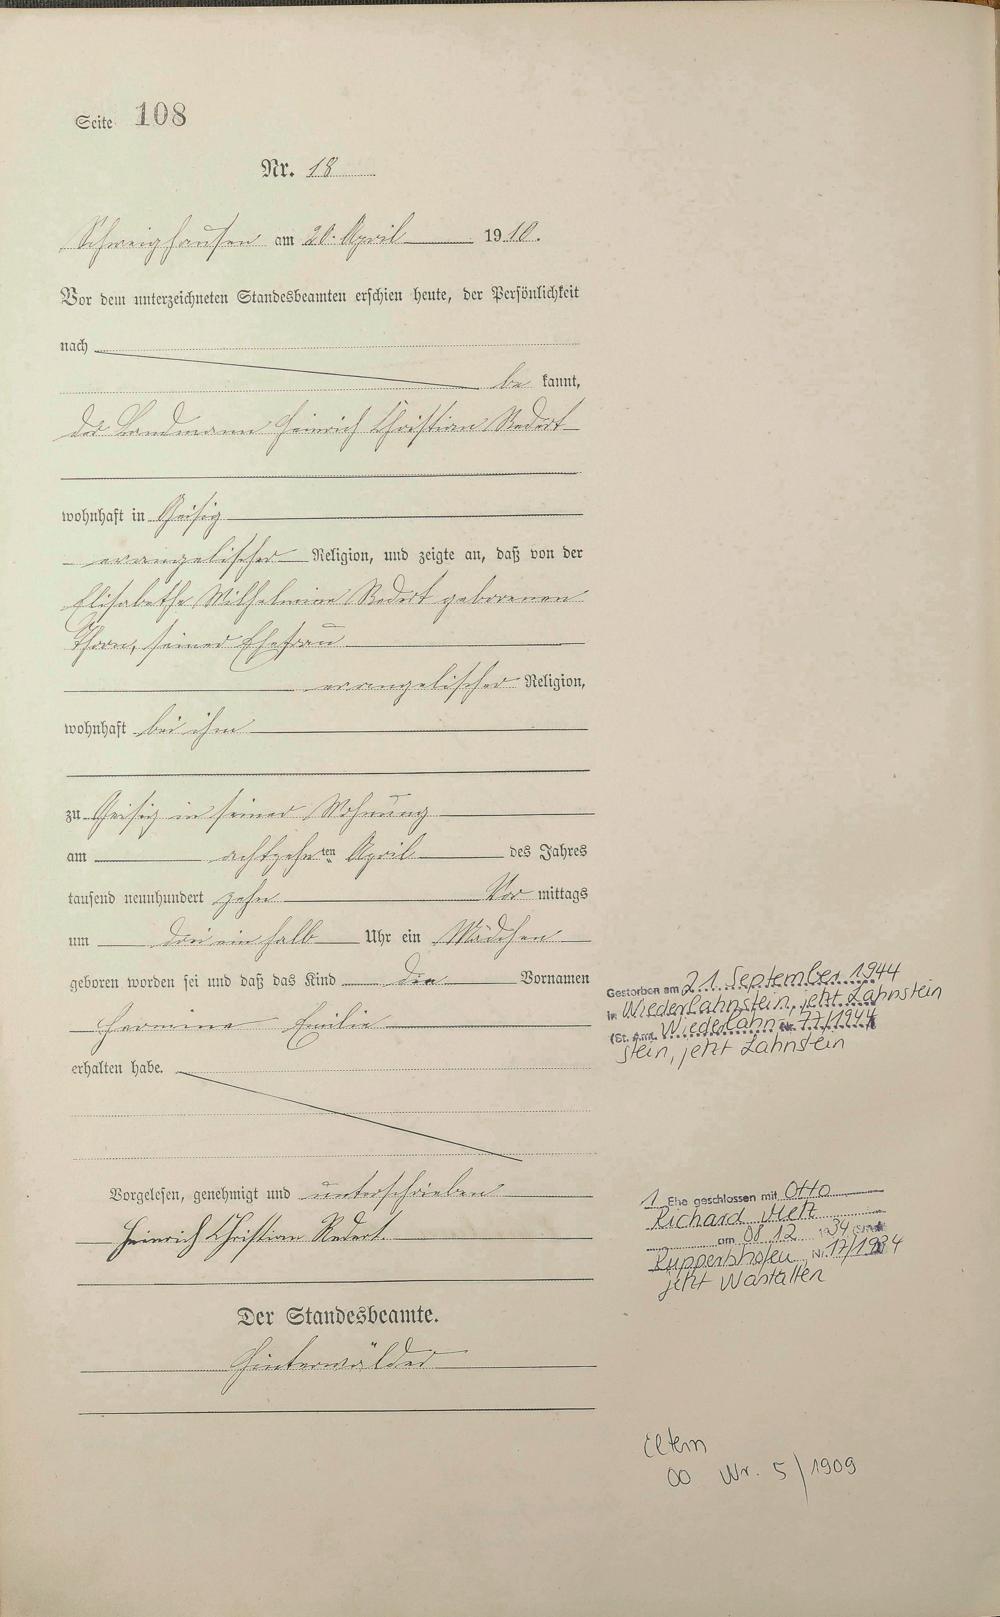 Seite 108
Nr. 18
Schweighausen am 20. April 1910.
Vor dem unterzeichneten Standesbeamten erschien heute, der Persönlichkeit
nach
be kannt,
der Landmann Heinrich Christian Redert
wohnhaft in Geisig
evangelischer Religion, und zeigte an, daß von der
Elisabethe Wilhelmine Redert geborenen
Thorn, seiner Ehefrau
evangelischer Religion,
wohnhaft bei ihm
zu Geisig in seiner Wohnung
am achtzehnten April des Jahres
tausend neunhundert zehn Vor mittags
um drei ein halb Uhr ein Mädchen
geboren worden sei und daß das Kind die Vornamen
Hermine Emilie
erhalten habe.
Vorgelesen, genehmigt und unterschrieben
Heinrich Christian Redert.
Der Standesbeamte.
Hinterwälder
Gestorben am 21. September 1944
in Niederlahnstein, jetzt Lahnstein
(St. Amt. Niederlahn- Nr. 77/1944)
stein, jetzt Lahnstein
1. Ehe geschlossen mit Otto
Richard Metz
am 08 12 1934
Ruppertshofen Nr. 17/1934
jetzt Nastätten
Eltern
oo Nr. 5/1909